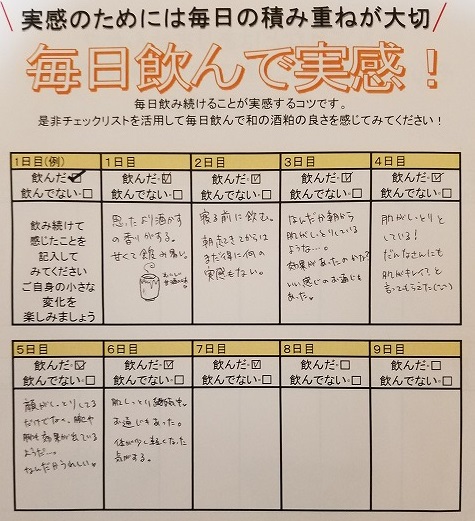 実感のためには毎日の積み重ねが大切
毎日飲んで実感！
毎日飲み続けることが実感するコツです。
是非チェックリストを活用して毎日飲んで和の酒粕の良さを感じてみてください！
1日目(例)
飲んだ-☑
飲んでない-□
飲み続けて
感じたことを
記入して
みてください
ご自身の小さな
変化を
楽しみましょう
1日目
飲んだ-☑
飲んでない-□
思ったより酒かす
の香りがする。
甘くて飲み易い。
2日目
飲んだ-☑
飲んでない-□
寝る前に飲む。
朝起きてからは
まだ特に何の
実感もない。
3日目
飲んだ-☑
飲んでない-□
なんだか朝から
肌がしっとりしている
ような…。
効果があったのかな?
いい感じのお通じも
あった。
4日目
飲んだ-☑
飲んでない-□
肌がしっとり
している!
だんなさんにも
肌がキレイ?と
言ってもらえた(^^)
5日目
飲んだ-☑
飲んでない-□
顔がしっとりしてる
だけでなく、腕や
胸も効果が出ている
ようだ…
なんだかうれしい。
6日目
飲んだ-☑
飲んでない-□
肌しっとり継続中。
お通じもあった。
体が少し軽くなった
気がする。
7日目
飲んだ-☑
飲んでない-□
8日目
飲んだ-□
飲んでない-□
9日目
飲んだ-□
飲んでない-□